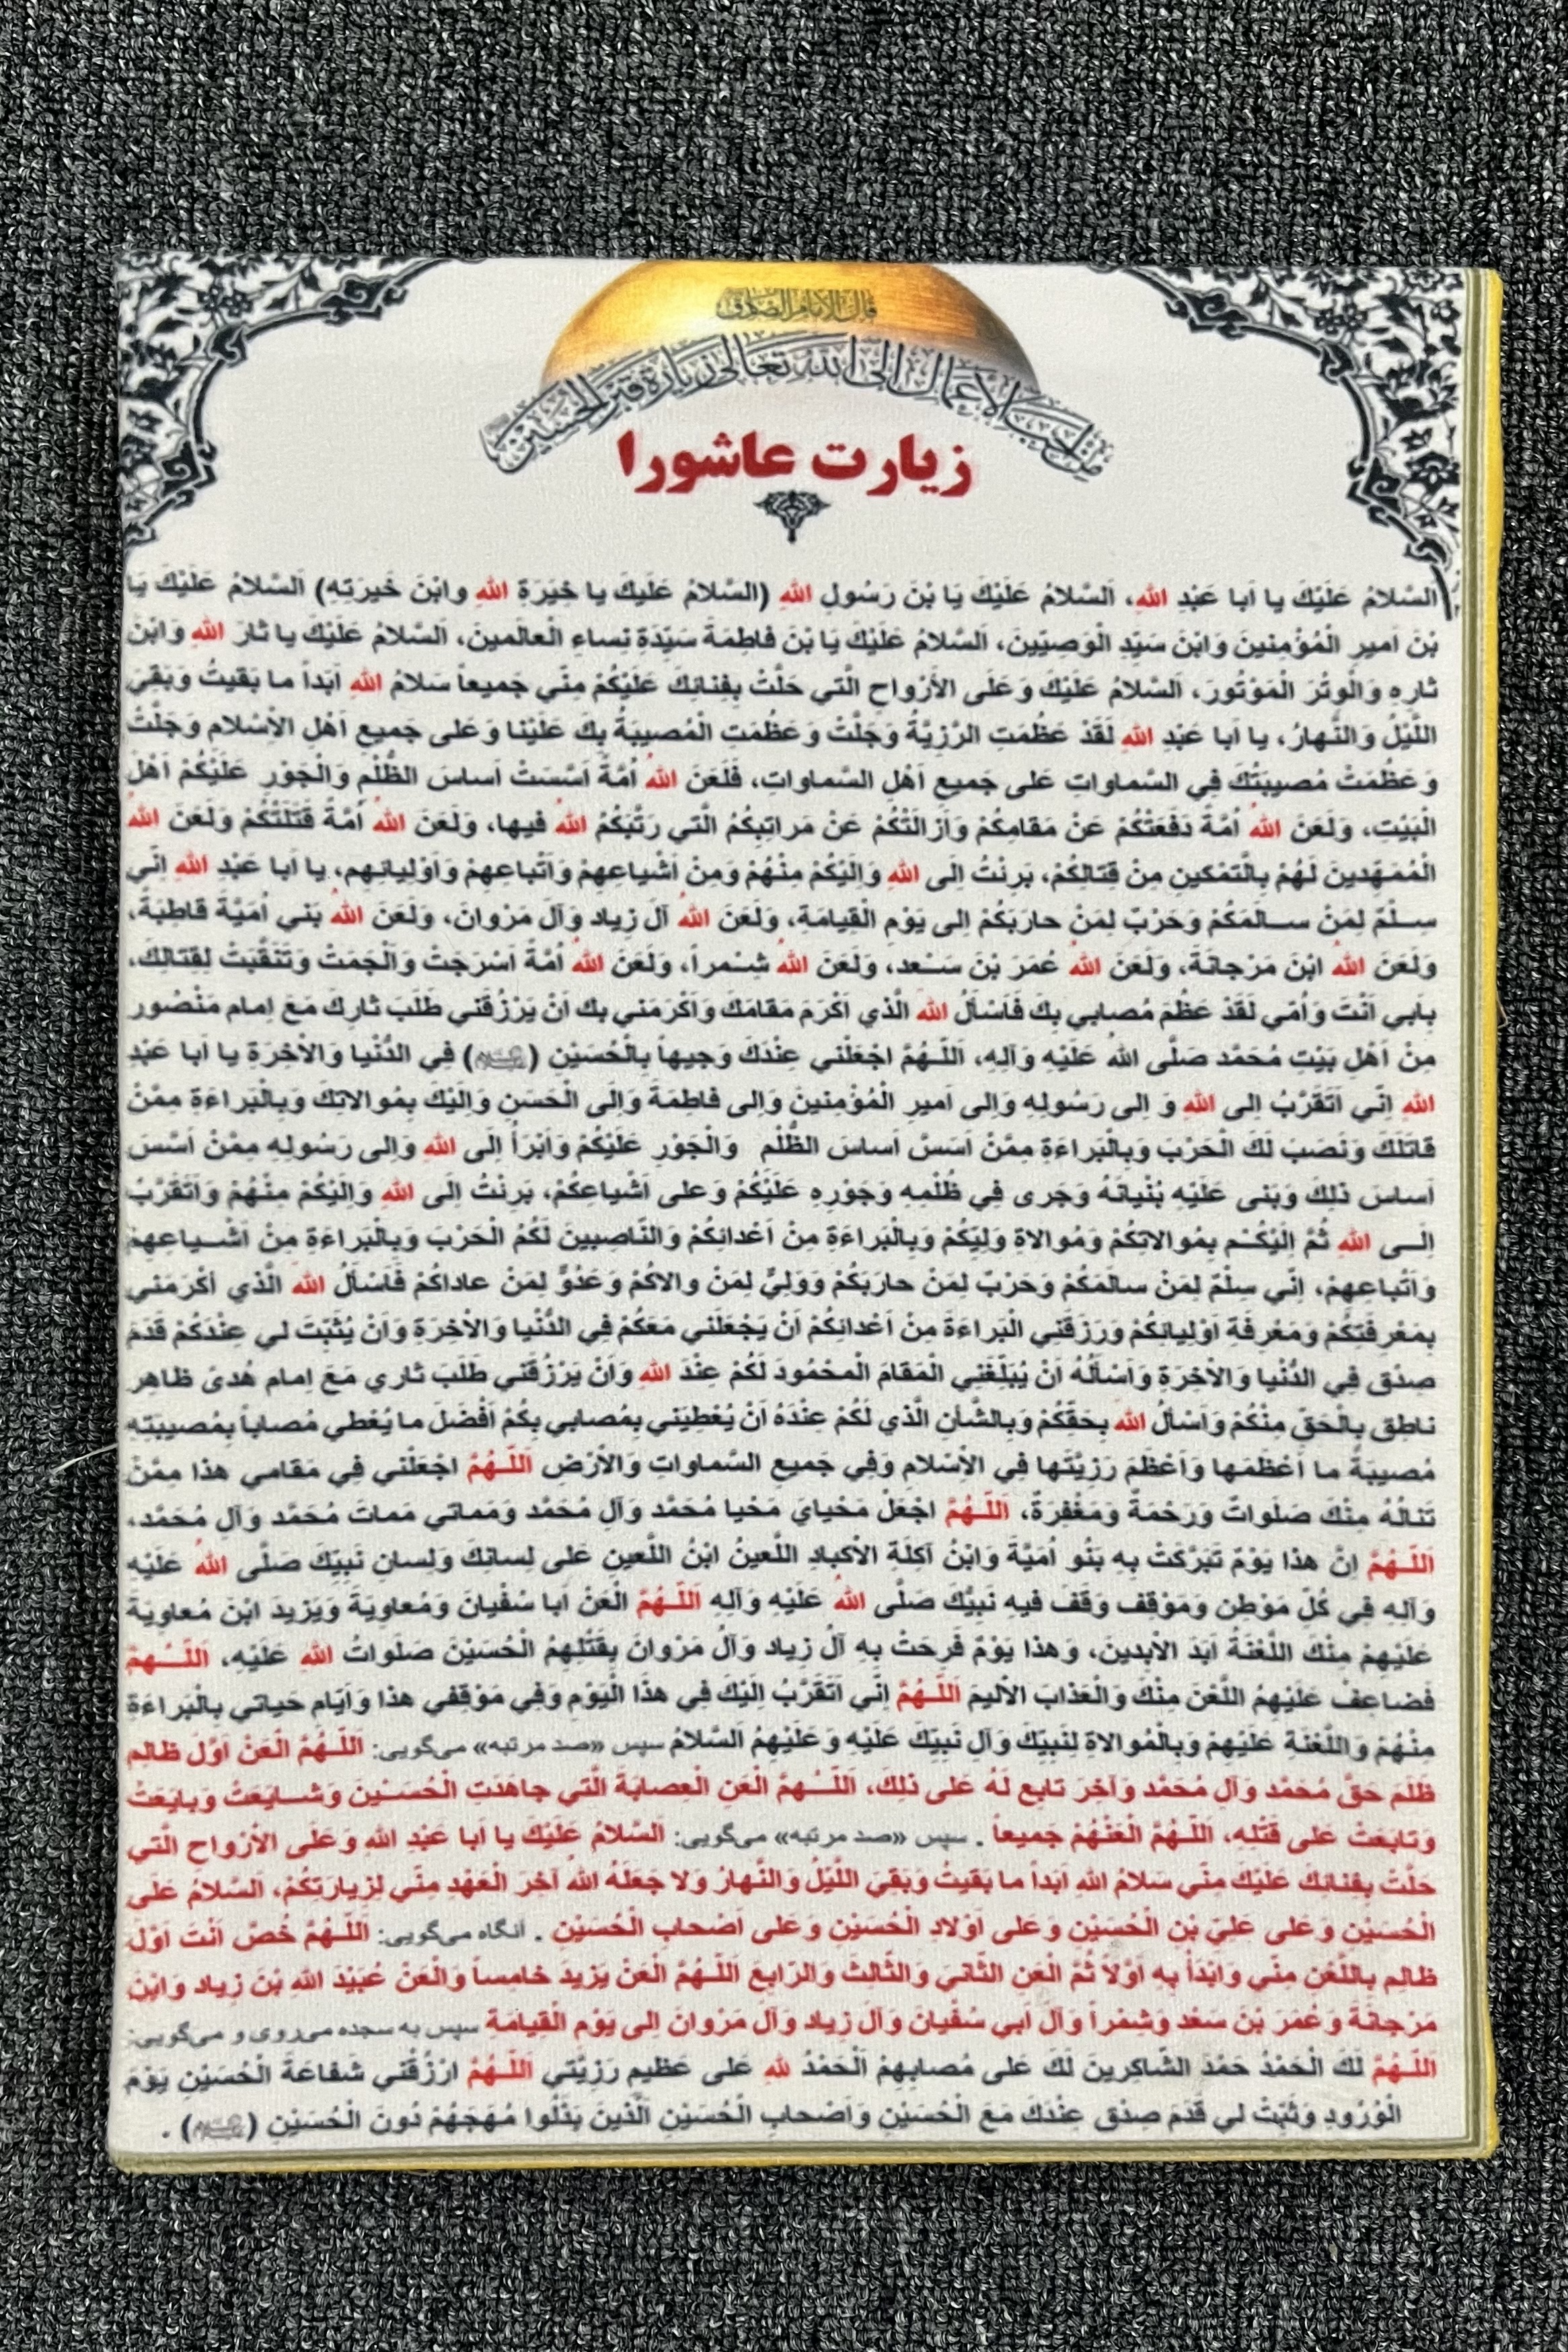 قال الإمام الصادق
من أحب الأعمال إلى الله تعالى زيارة قبر الحسين
زیارت عاشورا
اَلسَّلامُ عَلَيْكَ يا اَبا عَبْدِ اللهِ، اَلسَّلامُ عَلَيْكَ يَا بْنَ رَسُولِ اللهِ (السَّلامُ عَلَيكَ يا خِيَرَةِ اللهِ وابْنَ خَيرَتِهِ) اَلسَّلامُ عَلَيْكَ يَا
بْنَ اَميرِ الْمُؤْمِنينَ وَابْنَ سَيِّدِ الْوَصِيّينَ، اَلسَّلامُ عَلَيْكَ يَا بْنَ فاطِمَةَ سَيِّدَةِ نِساءِ الْعالَمينَ، اَلسَّلامُ عَلَيْكَ يا ثارَ اللهِ وَابْنَ
ثارِهِ وَالْوِتْرَ الْمَوْتُورَ، اَلسَّلامُ عَلَيْكَ وَعَلَى الأَرْواحِ الَّتي حَلَّتْ بِفِنائِكَ عَلَيْكُمْ مِنّي جَميعاً سَلامُ اللهِ اَبَداً ما بَقيتُ وَبَقِيَ
اللَّيْلُ وَالنَّهارُ، يا اَبا عَبْدِ اللهِ لَقَدْ عَظُمَتِ الرَّزِيَّةُ وَجَلَّتْ وَعَظُمَتِ الْمُصيبَةُ بِكَ عَلَيْنا وَعَلى جَميعِ اَهْلِ الاْسْلامِ وَجَلَّتْ
وَعَظُمَتْ مُصيبَتُكَ فِي السَّماواتِ عَلى جَميعِ اَهْلِ السَّماواتِ، فَلَعَنَ اللهُ اُمَّةً اَسَّسَتْ اَساسَ الظُّلْمِ وَالْجَوْرِ عَلَيْكُمْ اَهْلَ
الْبَيْتِ، وَلَعَنَ اللهُ اُمَّةً دَفَعَتْكُمْ عَنْ مَقامِكُمْ وَاَزالَتْكُمْ عَنْ مَراتِبِكُمُ الَّتي رَتَّبَكُمُ اللهُ فيها، وَلَعَنَ اللهُ اُمَّةً قَتَلَتْكُمْ وَلَعَنَ اللهُ
الْمُمَهِّدينَ لَهُمْ بِالَّتمْكينِ مِنْ قِتالِكُمْ، بَرِئْتُ اِلَى اللهِ وَاِلَيْكُمْ مِنْهُمْ وَمِنْ اَشْياعِهِمْ وَاَتْباعِهِمْ وَاَوْلِيائِهِم، يا اَبا عَبْدِ اللهِ اِنّي
سِـلْمٌ لِمَنْ سـالَمَكُمْ وَحَرْبٌ لِمَنْ حارَبَكُمْ اِلى يَوْمِ الْقِيامَةِ، وَلَعَنَ اللهُ آلَ زِياد وَآلَ مَرْوانَ، وَلَعَنَ اللهُ بَني اُمَيَّةَ قاطِبَةً،
وَلَعَنَ اللهُ ابْنَ مَرْجانَةَ، وَلَعَنَ اللهُ عُمَرَ بْنَ سَـعْد، وَلَعَنَ اللهُ شِـمْراً، وَلَعَنَ اللهُ اُمَّةً اَسْرَجَتْ وَاَلْجَمَتْ وَتَنَقَّبَتْ لِقِتالِكَ،
بِاَبي اَنْتَ وَاُمّي لَقَدْ عَظُمَ مُصابي بِكَ فَاَسْأَلُ اللهَ الَّذي اَكْرَمَ مَقامَكَ وَاَكْرَمَني بِكَ اَنْ يَرْزُقَني طَلَبَ ثارِكَ مَعَ اِمام مَنْصُور
مِنْ اَهْلِ بَيْتِ مُحَمَّد صَلَّى اللهُ عَلَيْهِ وَآلِهِ، اَللّـهُمَّ اجْعَلْني عِنْدَكَ وَجيهاً بِالْحُسَيْنِ (عليه‌السلام) فِي الدُّنْيا وَالاْخِرَةِ يا اَبا عَبْدِ
اللهِ اِنّي اَتَقَرَّبُ اِلى اللهِ وَ اِلى رَسُولِهِ وَاِلى اَميرِ الْمُؤْمِنينَ وَاِلى فاطِمَةَ وَاِلَى الْحَسَنِ وَاِلَيْكَ بِمُوالاتِكَ وَبِالْبَراءَةِ مِمَّنْ
قاتَلَكَ وَنَصَبَ لَكَ الْحَرْبَ وبِالْبَراءَةِ مِمَّنْ اَسَسَّ اَساسَ الظُّلْمِ وَالْجَوْرِ عَلَيْكُمْ وَاَبْرَأُ اِلَى اللهِ وَاِلى رَسُولِهِ مِمَّنْ اَسَّسَ
اَساسَ ذلِكَ وَبَنى عَلَيْهِ بُنْيانَهُ وَجَرى فِي ظُلْمِهِ وَجَوْرِهِ عَلَيْكُمْ وَعلى اَشْياعِكُمْ، بَرِئْتُ اِلَى اللهِ وَاِلَيْكُمْ مِنْهُمْ وَاَتَقَرَّبُ
اِلَـى اللهِ ثُمَّ اِلَيْكُـمْ بِمُوالاتِكُمْ وَمُوالاةِ وَلِيِّكُمْ وَبِالْبَراءَةِ مِنْ اَعْدائِكُمْ وَالنّاصِبينَ لَكُمُ الْحَرْبَ وَبِالْبَراءَةِ مِنْ اَشْـياعِهِمْ
وَاَتْباعِهِمْ، اِنّي سِلْمٌ لِمَنْ سالَمَكُمْ وَحَرْبٌ لِمَنْ حارَبَكُمْ وَوَلِيٌّ لِمَنْ والاكُمْ وَعَدُوٌّ لِمَنْ عاداكُمْ فَاَسْأَلُ اللهَ الَّذي أكْرَمَني
بِمَعْرِفَتِكُمْ وَمَعْرِفَةِ اَوْلِيائِكُمْ وَرَزَقَنِي الْبَراءَةَ مِنْ اَعْدائِكُمْ اَنْ يَجْعَلَني مَعَكُمْ فِي الدُّنْيا وَالاْخِرَةِ وَاَنْ يُثَبِّتَ لي عِنْدَكُمْ قَدَمَ
صِدْق فِي الدُّنْيا وَالاْخِرَةِ وَاَسْأَلُهُ اَنْ يُبَلِّغَنِي الْمَقامَ الْمحْمُودَ لَكُمْ عِنْدَ اللهِ وَاَنْ يَرْزُقَني طَلَبَ ثاري مَعَ اِمام هُدىً ظاهِر
ناطِق بِالْحَقِّ مِنْكُمْ وَاَسْألُ اللهَ بِحَقِّكُمْ وَبِالشَّأنِ الَّذي لَكُمْ عِنْدَهُ اَنْ يُعْطِيَني بِمُصابي بِكُمْ اَفْضَلَ ما يُعْطي مُصاباً بِمُصيبَتِهِ
مُصيبَةً ما اَعْظَمَها وَاَعْظَمَ رَزِيَّتَها فِي الاْسْلامِ وَفِي جَميعِ السَّماواتِ وَالاْرْضِ اَللّـهُمَّ اجْعَلْني فِي مَقامي هذا مِمَّنْ
تَنالُهُ مِنْكَ صَلَواتٌ وَرَحْمَةٌ وَمَغْفِرَةٌ، اَللّـهُمَّ اجْعَلْ مَحْيايَ مَحْيا مُحَمَّد وَآلِ مُحَمَّد وَمَماتي مَماتَ مُحَمَّد وَآلِ مُحَمَّد،
اَللّـهُمَّ اِنَّ هذا يَوْمٌ تَبَرَّكَتْ بِهِ بَنُو اُمَيَّةَ وَابْنُ آكِلَةِ الاْكبادِ اللَّعينُ ابْنُ اللَّعينِ عَلى لِسانِكَ وَلِسانِ نَبِيِّكَ صَلَّى اللهُ عَلَيْهِ
وَآلِهِ فِي كُلِّ مَوْطِن وَمَوْقِف وَقَفَ فيهِ نَبِيُّكَ صَلَّى اللهُ عَلَيْهِ وَآلِهِ اَللّـهُمَّ الْعَنْ اَبا سُفْيانَ وَمُعاوِيَةَ وَيَزيدَ ابْنَ مُعاوِيَةَ
عَلَيْهِمْ مِنْكَ اللَّعْنَةُ اَبَدَ الاْبِدينَ، وَهذا يَوْمٌ فَرِحَتْ بِهِ آلُ زِياد وَآلُ مَرْوانَ بِقَتْلِهِمُ الْحُسَيْنَ صَلَواتُ اللهِ عَلَيْهِ، اَللّـهُمَّ
فَضاعِفْ عَلَيْهِمُ اللَّعْنَ مِنْكَ وَالْعَذابَ الاْليمَ اَللّـهُمَّ اِنّي اَتَقَرَّبُ اِلَيْكَ فِي هذَا الْيَوْمِ وَفِي مَوْقِفي هذا وَاَيّامِ حَياتي بِالْبَراءَةِ
مِنْهُمْ وَاللَّعْنَةِ عَلَيْهِمْ وَبِالْمُوالاةِ لِنَبِيِّكَ وَآلِ نَبِيِّكَ عَلَيْهِ وَعَلَيْهِمُ السَّلامُ سپس «صد مرتبه» می‌گویی: اَللّـهُمَّ الْعَنْ اَوَّلَ ظالِم
ظَلَمَ حَقَّ مُحَمَّد وَآلِ مُحَمَّد وَآخِرَ تابِع لَهُ عَلى ذلِكَ، اَللّـهُمَّ الْعَنِ الْعِصابَةَ الَّتي جاهَدَتِ الْحُسَـيْنَ وَشـايَعَتْ وَبايَعَتْ
وَتابَعَتْ عَلى قَتْلِهِ، اَللّـهُمَّ الْعَنْهُمْ جَميعاً . سپس «صد مرتبه» می‌گویی: اَلسَّلامُ عَلَيْكَ يا اَبا عَبْدِ اللهِ وَعَلَى الاْرْواحِ الَّتي
حَلَّتْ بِفِنائِكَ عَلَيْكَ مِنّي سَلامُ اللهِ اَبَداً ما بَقيتُ وَبَقِيَ اللَّيْلُ وَالنَّهارُ وَلا جَعَلَهُ اللهُ آخِرَ الْعَهْدِ مِنّي لِزِيارَتِكُمْ، اَلسَّلامُ عَلَى
الْحُسَيْنِ وَعَلى عَلِيِّ بْنِ الْحُسَيْنِ وَعَلى اَوْلادِ الْحُسَيْنِ وَعَلى اَصْحابِ الْحُسَيْنِ . آنگاه می‌گویی: اَللّـهُمَّ خُصَّ اَنْتَ اَوَّلَ
ظالِم بِاللَّعْنِ مِنّي وَابْدَأْ بِهِ اَوَّلاً ثُمَّ الْعَنِ الثّانيَ وَالثّالِثَ وَالرّابِعَ اَللّـهُمَّ الْعَنْ يَزيدَ خامِساً وَالْعَنْ عُبَيْدَ اللهِ بْنَ زِياد وَابْنَ
مَرْجانَةَ وَعُمَرَ بْنَ سَعْد وَشِمْراً وَآلَ اَبي سُفْيانَ وَآلَ زِياد وَآلَ مَرْوانَ اِلى يَوْمِ الْقِيامَةِ سپس به سجده می‌روی و می‌گویی:
اَللّـهُمَّ لَكَ الْحَمْدُ حَمْدَ الشّاكِرينَ لَكَ عَلى مُصابِهِمْ اَلْحَمْدُ للهِ عَلى عَظيمِ رَزِيَّتي اَللّـهُمَّ ارْزُقْني شَفاعَةَ الْحُسَيْنِ يَوْمَ
الْوُرُودِ وَثَبِّتْ لي قَدَمَ صِدْق عِنْدَكَ مَعَ الْحُسَيْنِ وَاَصْحابِ الْحُسَيْنِ اَلَّذينَ بَذَلُوا مُهَجَهُمْ دُونَ الْحُسَيْنِ (عليه‌السلام) .